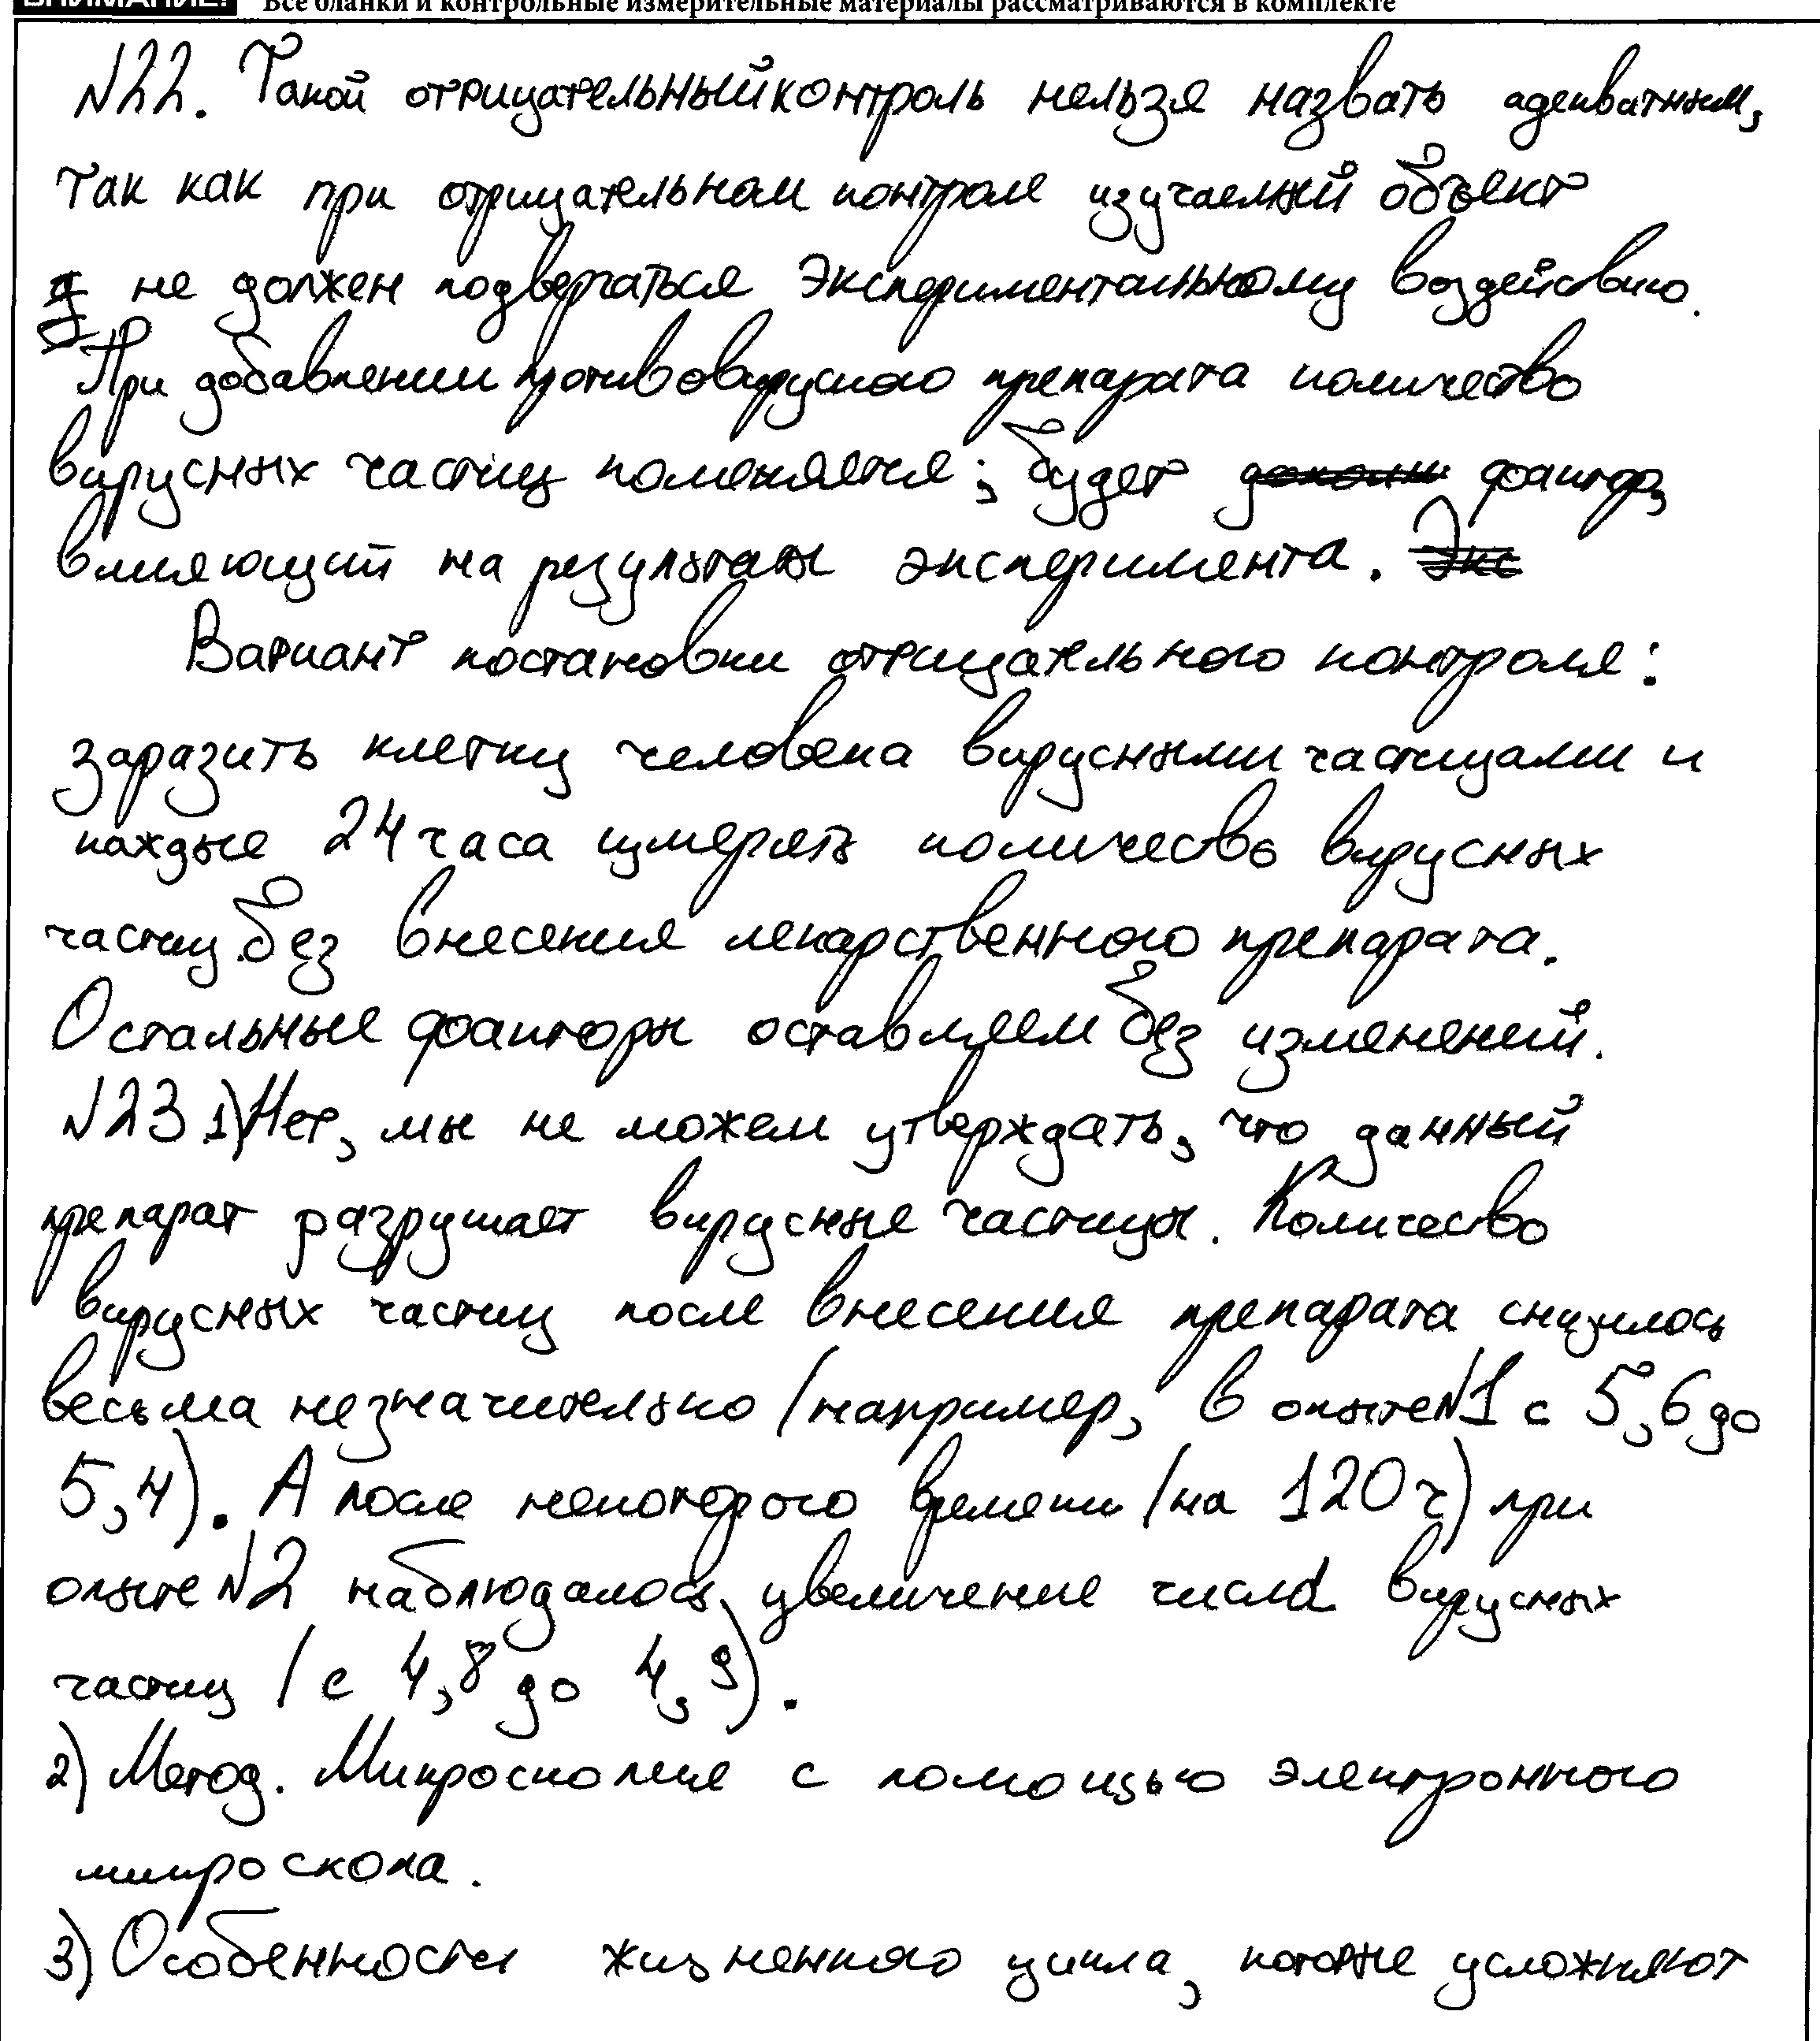 ВНИМАНИЕ! Все бланки и контрольные измерительные материалы рассматриваются в комплекте
№22. Такой отрицательный контроль нельзя назвать адекватным,
так как при отрицательном контроле изучаемый объект
не должен подвергаться экспериментальному воздействию.
При добавлении противовирусного препарата количество
вирусных частиц поменяется; будет фактор,
влияющий на результаты эксперимента. Экс
Вариант постановки отрицательного контроля:
заразить клетки человека вирусными частицами и
каждые 24 часа измерять количество вирусных
частиц без внесения лекарственного препарата.
Остальные факторы оставляем без изменений.
№23 1) Нет, мы не можем утверждать, что данный
препарат разрушает вирусные частицы. Количество
вирусных частиц после внесения препарата снизилось
весьма незначительно (например, в опыте №1 с 5,6 до
5,4). А после некоторого времени (на 120 ч) при
опыте №2 наблюдалось увеличение числа вирусных
частиц (с 4,8 до 4,9).
2) Метод. Микроскопия с помощью электронного
микроскопа.
3) Особенности жизненного цикла, которые усложняют